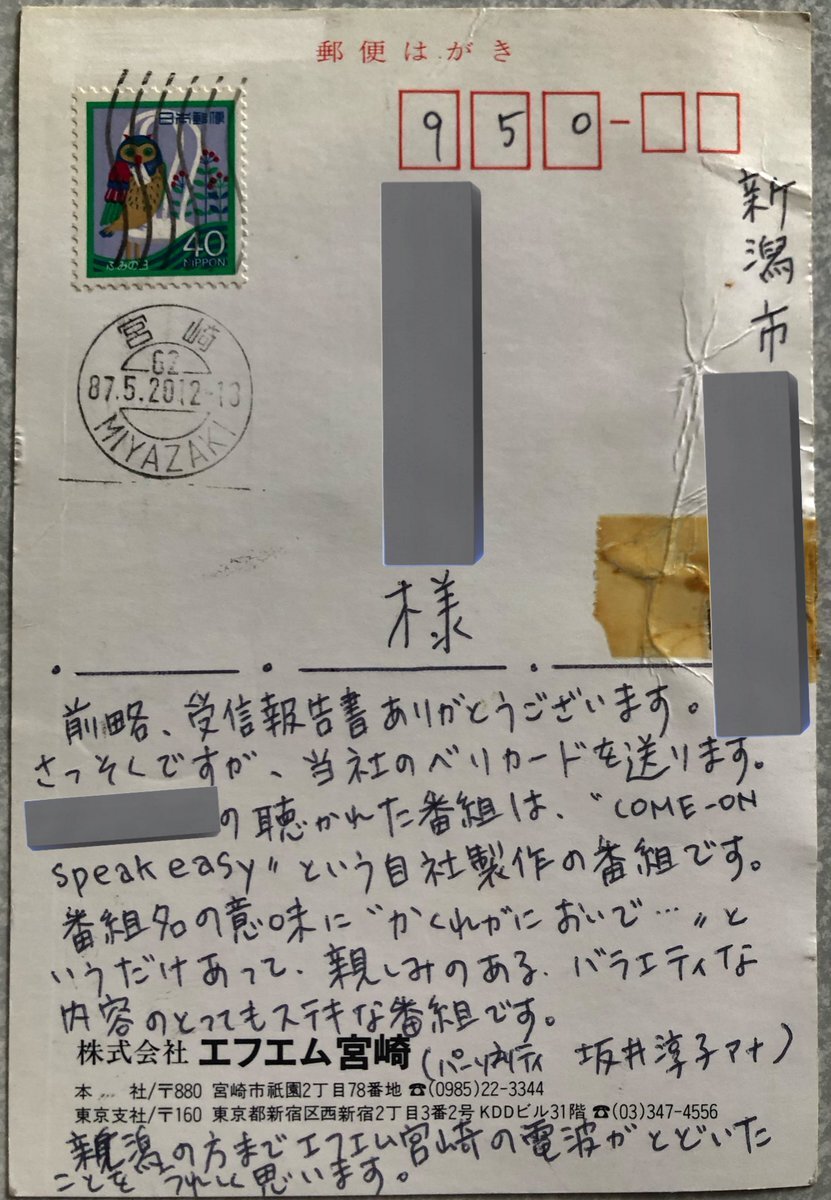 郵便はがき
日本郵便
40
NIPPON
ふみの日
950-
新潟市
宮崎
G2
87.5.20 12-18
MIYAZAKI
様
前略、受信報告書ありがとうございます。
さっそくですが、当社のベリカードを送ります。
の聴かれた番組は、〝COME-ON
speak easy〟という自社製作の番組です。
番組名の意味に〝かくれがにおいで…〟と
いうだけあって、親しみのある、バラエティな
内容のとってもステキな番組です。
株式会社 エフエム宮崎 (パーソナリティ 坂井淳子アナ)
本 社/〒880 宮崎市祇園2丁目78番地 ☎(0985)22-3344
東京支社/〒160 東京都新宿区西新宿2丁目3番2号 KDDビル31階 ☎(03)347-4556
新潟の方までエフエム宮崎の電波がとどいた
ことをうれしく思います。